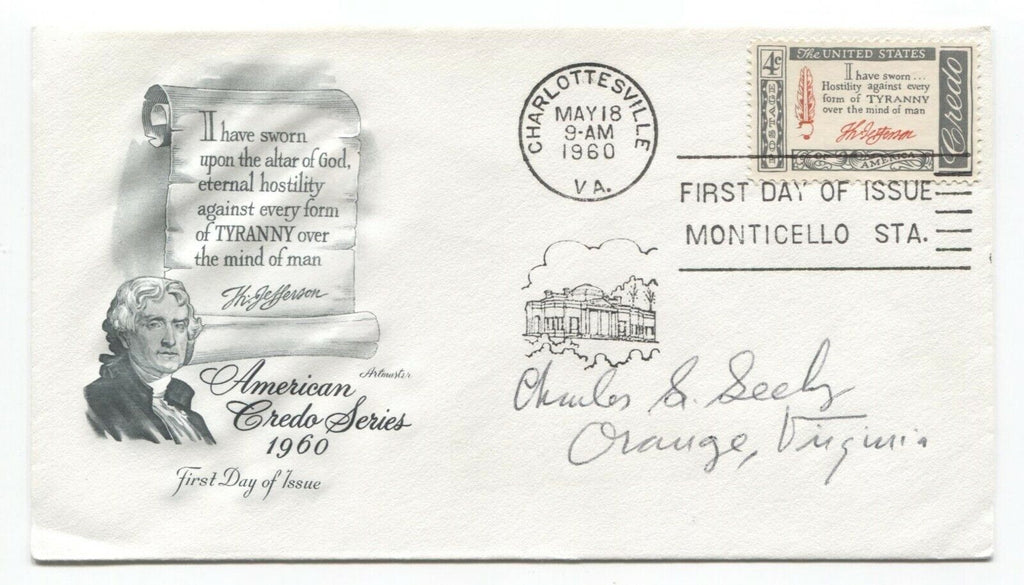 I have sworn
upon the altar of God,
eternal hostility
against every form
of TYRANNY over
the mind of man
Th: Jefferson
Artmaster
American
Credo Series
1960
First Day of Issue
CHARLOTTESVILLE
MAY 18
9-AM
1960
VA.
The UNITED STATES
4c
POSTAGE
I have sworn...
Hostility against every
form of TYRANNY
over the mind of man
Th: Jefferson
Credo
OF AMERICA
FIRST DAY OF ISSUE
MONTICELLO STA.
Charles S. Seely
Orange, Virginia